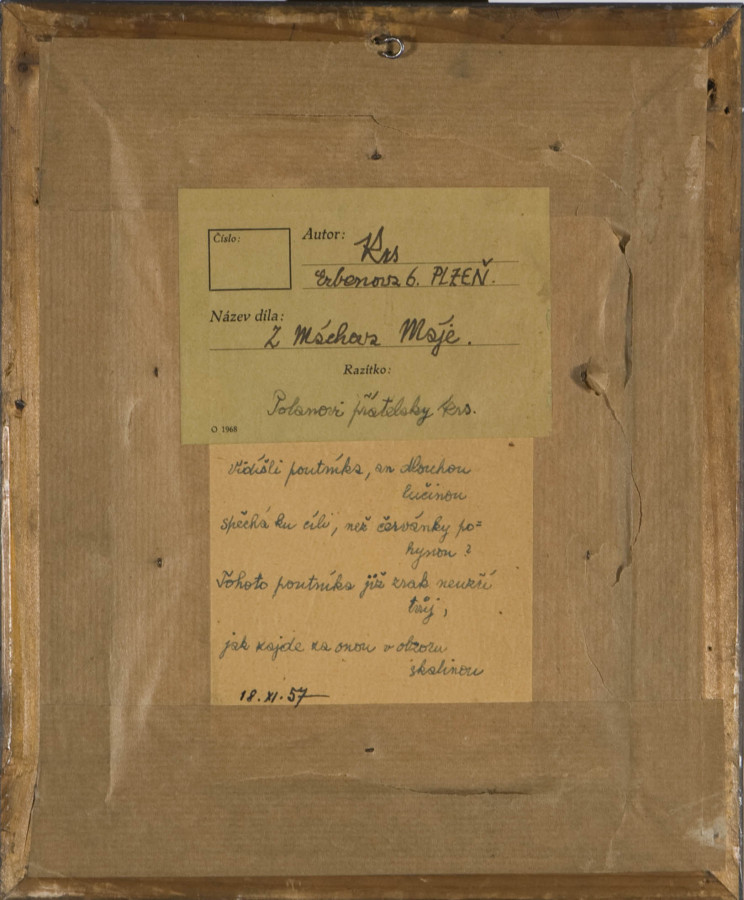 Číslo:
Autor: Krs
Erbenova 6. PLZEŇ.
Název díla:
Z Máchova Máje.
Razítko:
Polanovi přátelsky Krs.
O 1968
Vidíšli poutníka, an dlouhou
lučinou
spěchá ku cíli, než červánky po=
hynou?
Tohoto poutníka již zrak neuzří
tvůj,
jak zajde za onou v obzoru
skalinou
18. XI. 57